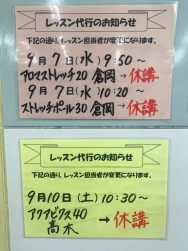 レッスン代行のお知らせ
下記の通り、レッスン担当者が変更になります。
9月7日(水) 9:50〜
アロマストレッチ20 倉岡→休講
9月7日(水)10:20〜
ストレッチポール30 倉岡→休講
レッスン代行のお知らせ
下記の通り、レッスン担当者が変更になります。
9月10日(土)10:30〜
アクアビクス40 →休講
高木